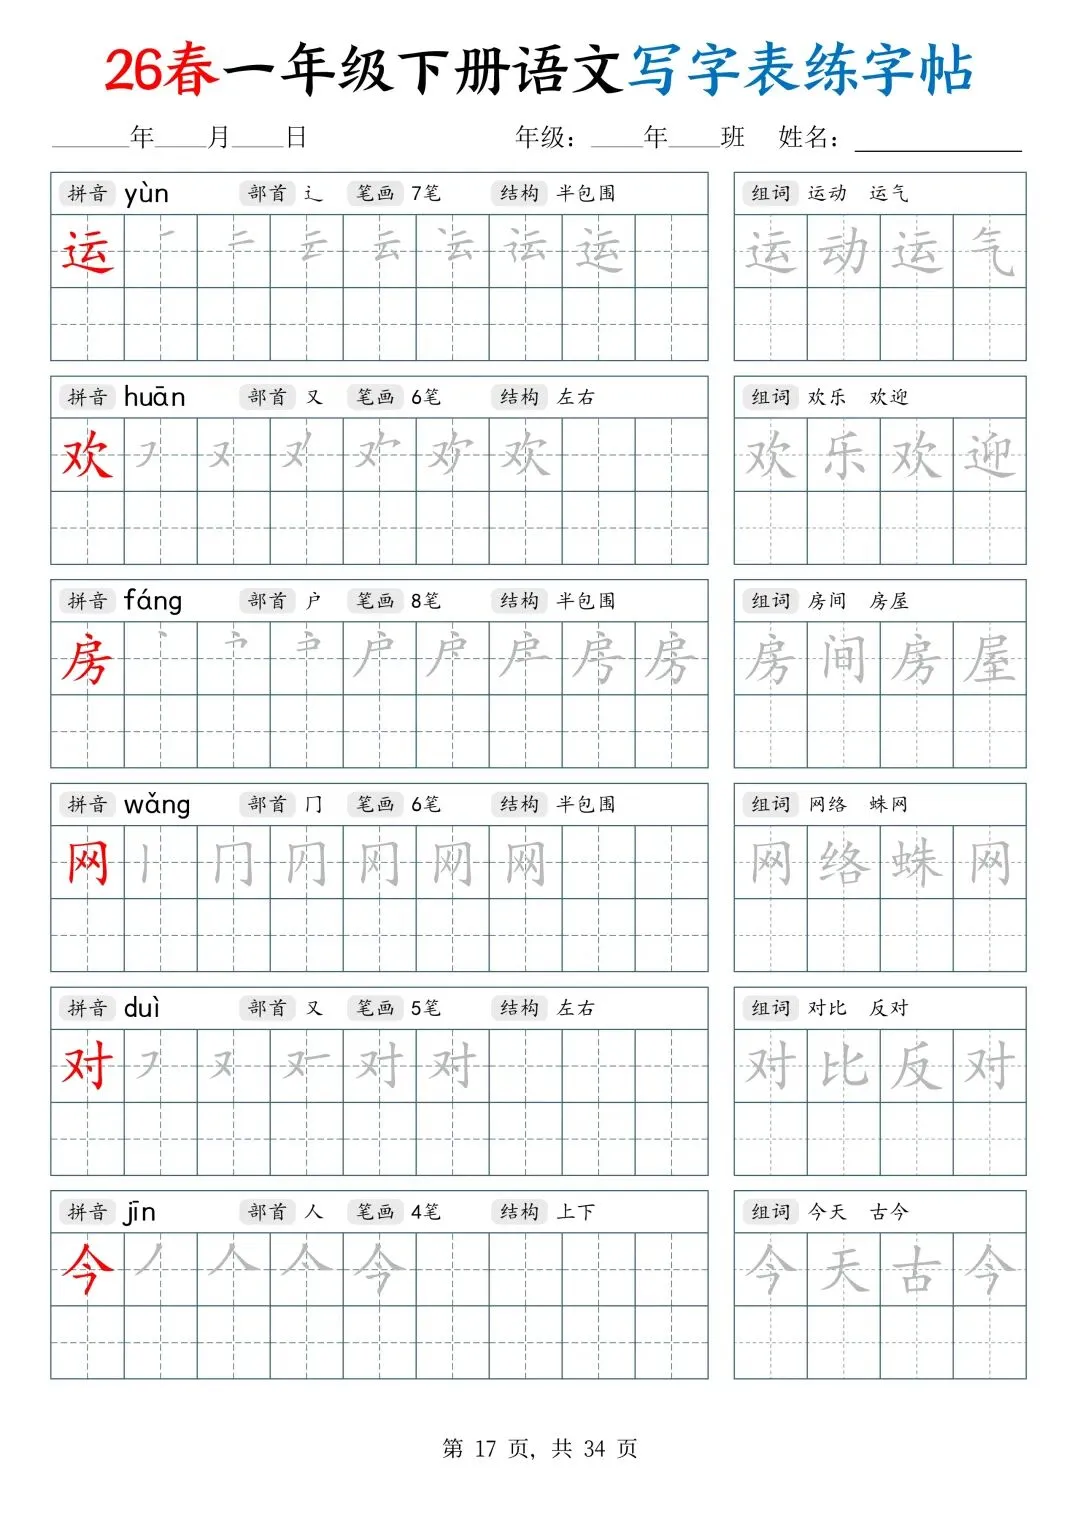 26春一年级下册语文写字表练字帖
______年____月____日 年级：____年____班 姓名：____________
拼音 yùn 部首 辶 笔画 7笔 结构 半包围 组词 运动 运气
运 运 运动运气
拼音 huān 部首 又 笔画 6笔 结构 左右 组词 欢乐 欢迎
欢 又 欢 欢乐欢迎
拼音 fáng 部首 户 笔画 8笔 结构 半包围 组词 房间 房屋
房 户 房 房间房屋
拼音 wǎng 部首 冂 笔画 6笔 结构 半包围 组词 网络 蛛网
网 冂 网 网络蛛网
拼音 duì 部首 又 笔画 5笔 结构 左右 组词 对比 反对
对 又 对 对比反对
拼音 jīn 部首 人 笔画 4笔 结构 上下 组词 今天 古今
今 人 今 今天古今
第 17 页，共 34 页